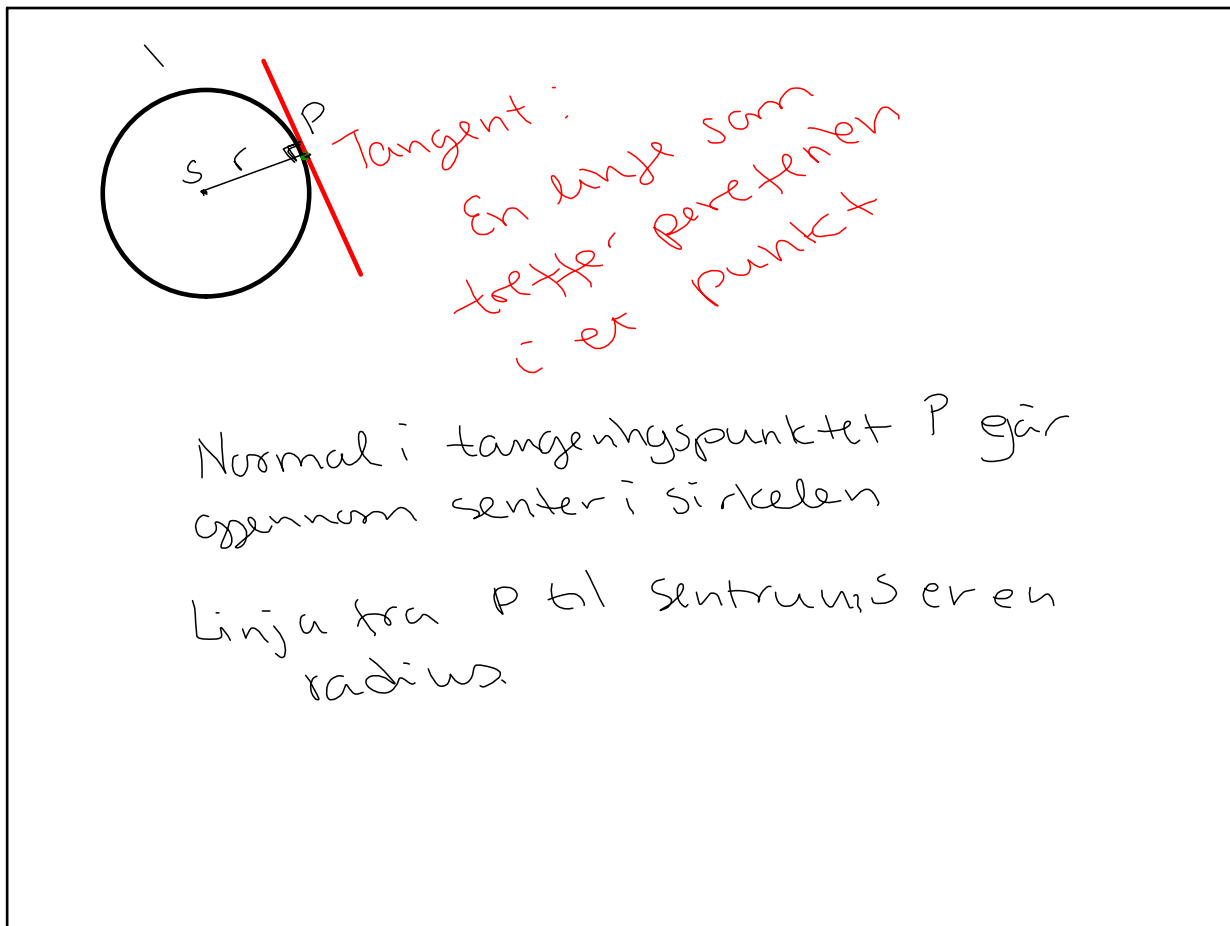 P
S r
Tangent:
En linje som
treffer pereferien
i et punkt
Normal i tangeringspunktet P går
gjennom senter i sirkelen
Linja fra P til sentrum, S er en
radius.